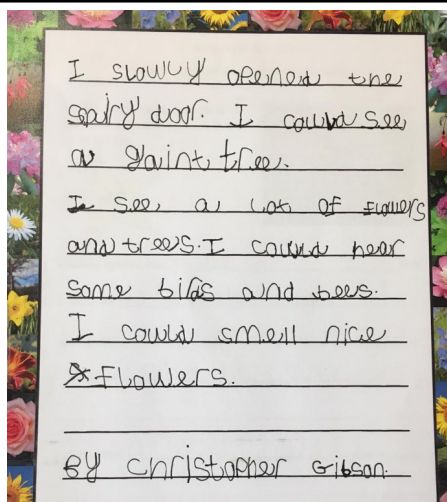 I slowly opened the
spairy door. I could see
a gaint tree.
I see a lot of flowers
and trees. I could hear
some birds and bees.
I could smell nice
flowers.
By Christopher Gibson.